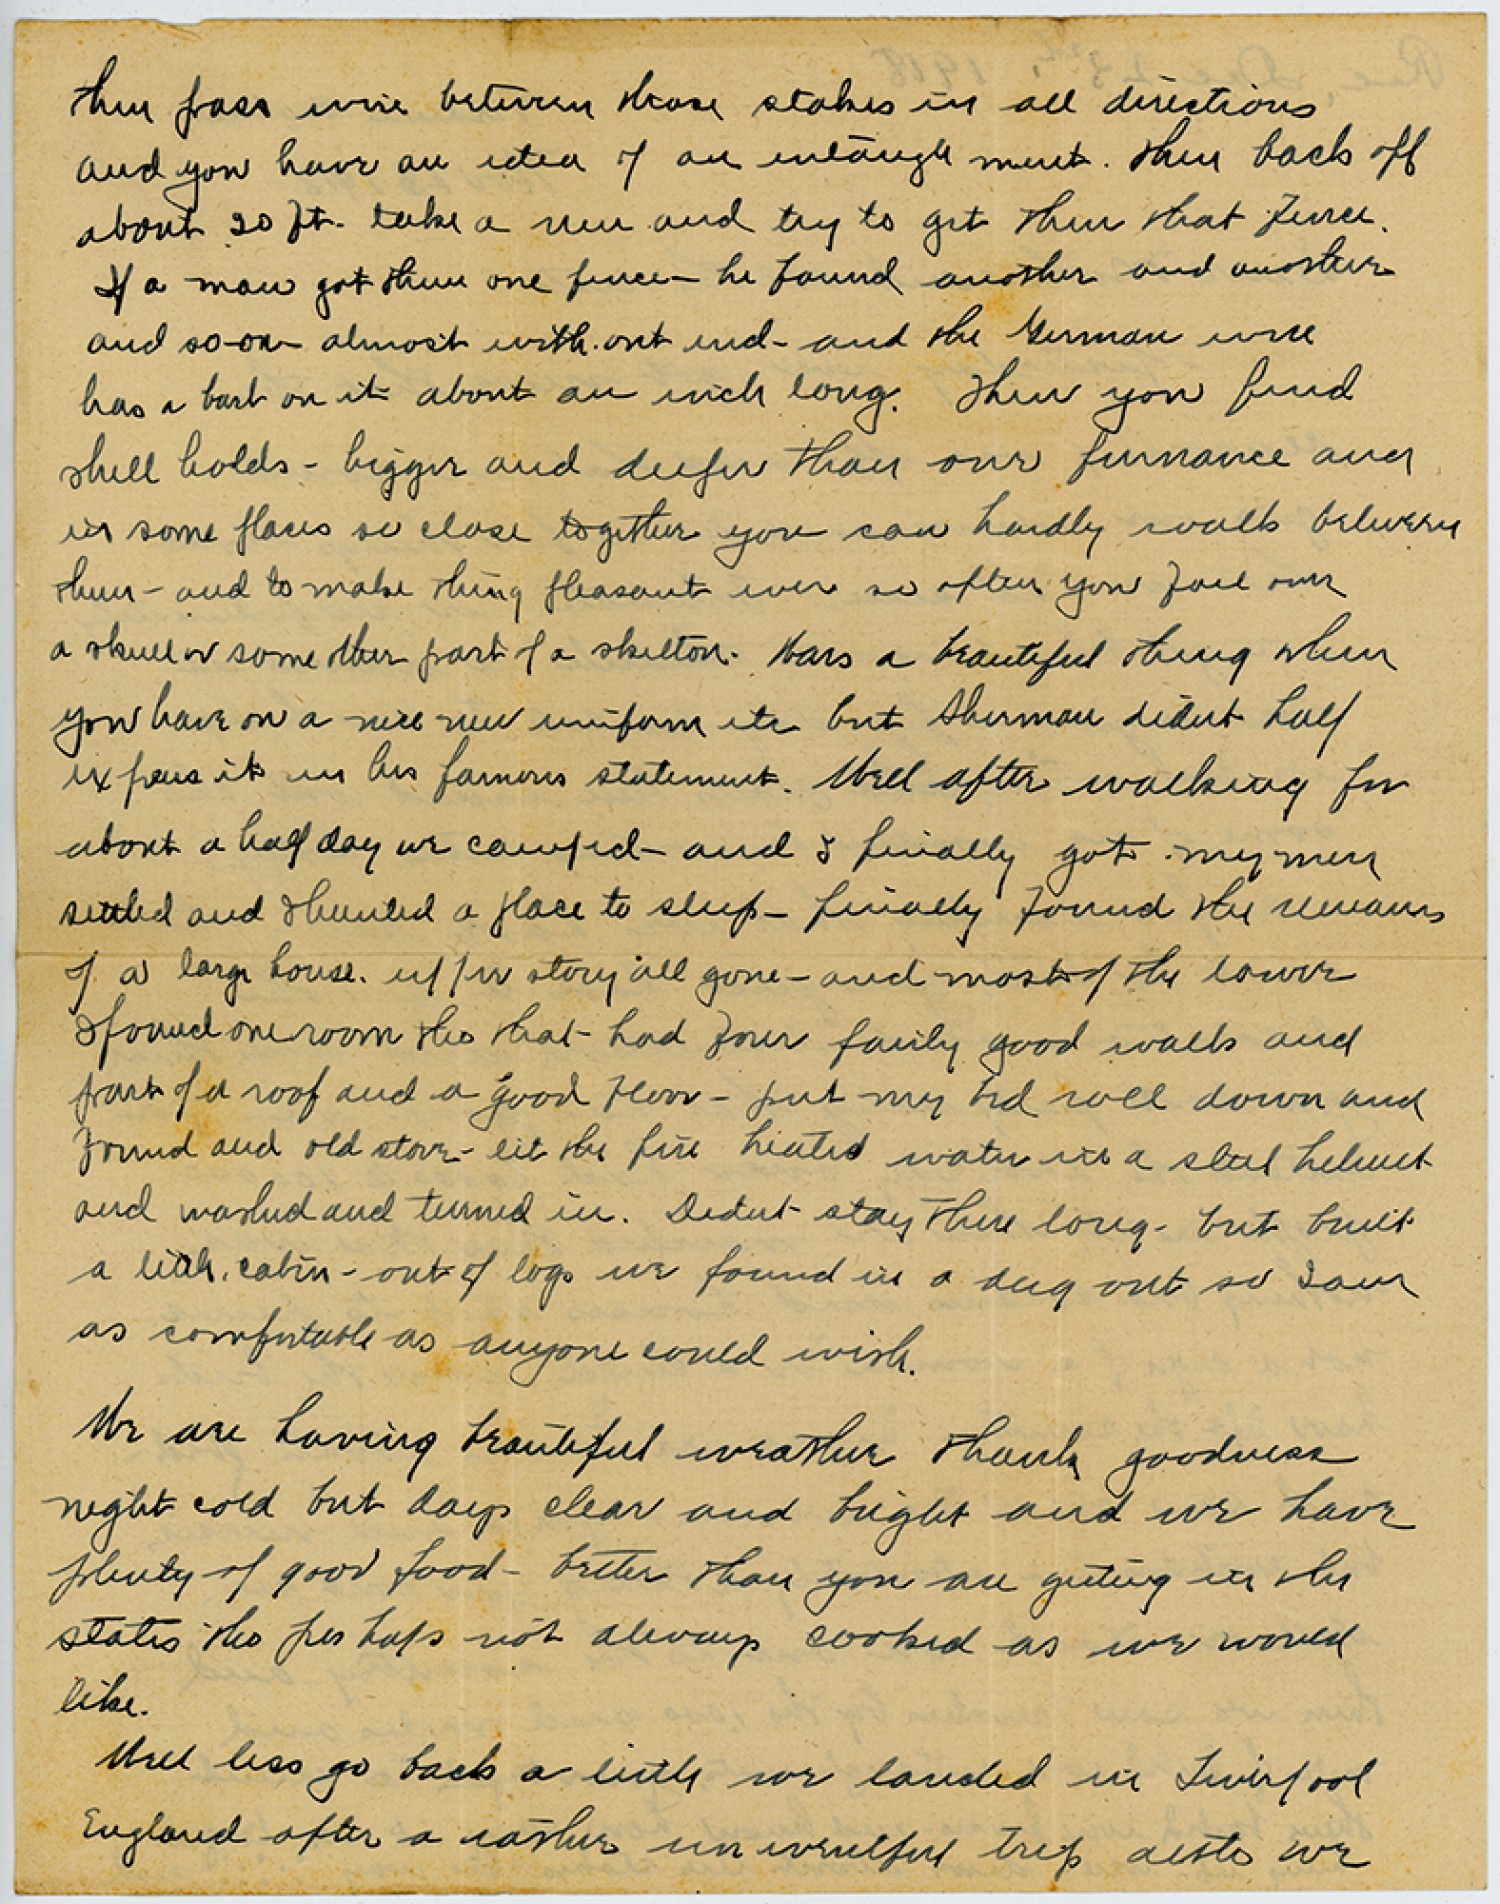 then pass wire between those stakes in all directions
and you have an idea of an intanglement. Then back off
about 20 ft. take a run and try to get thru that fence.
If a man got thru one fence - he found another and another
and so-on - almost with-out end - and the German wire
has a barb on it about an inch long. Then you find
shell holds - bigger and deeper than our furnance and
in some places so close together you can hardly walk between
them - and to make thing pleasant ever so often you fall over
a skull or some other part of a skelton. Wars a beautiful thing when
you have on a nice new uniform etc but Sherman didnt half
express it in his famous statement. Well after walking for
about a half day we camped - and I finally got my men
settled and I hunted a place to sleep - finally found the remains
of a large house. upper story all gone - and most of the lower
I found one room tho that had four fairly good walls and
part of a roof and a good floor - put my bed roll down and
found and old stove - lit the fire heated water in a steel helmet
and washed and turned in. Didnt stay there long - but built
a little cabin - out of logs we found in a dug out so I am
as comfortable as anyone could wish.
We are having beautiful weather thank goodness
night cold but days clear and bright and we have
plenty of good food - better than you are getting in the
states tho perhaps not always cooked as we would
like.
Well less go back a little we landed in Liverpool
England after a rather uneventful trip altho we
Dec 23rd, 1918